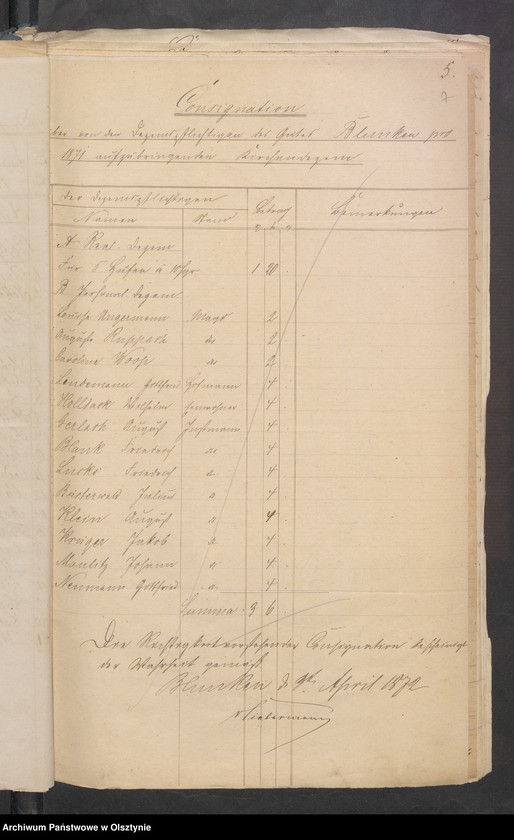 5.
7
Consignation
der von den Dezempflichtigen des Gutes Blunken pro
1871 aufzubringenden Kirchendezem
der Dezempflichtigen Betrag Bemerkungen
Namen Stand
A Real Dezem
Für 5 Hufen a 10 sgr 1 20 .
B Personal Dezem
Louise Ungermann Magd 2
Auguste Ruppach do 2
Caroline Woop do 2
Lindemann Gottfried Hofmann 4
Wilhelm 4
Gerlach August Instmann 4
Blank Friedrich do 4
Friedrich a 4
Julius a 4
Klein August a 4
Krüger Jakob a 4
Maulitz Johann a 4
Neumann Gottfried a 4
Summa 3 6
Die Richtigkeit vorstehender Consignation bescheinigt
der Wahrheit gemäß
Blunken d 9t April 1872
Archiwum Państwowe w Olsztynie